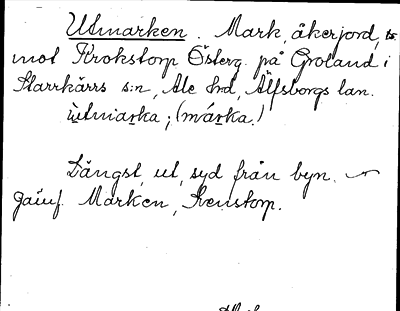 Utmarken. Mark, åkerjord,
mot Krokstorp Österg. på Groland i
Starrkärrs s:n, Ale hrd, Älfsborgs län.
ùtmarka; (márka.)
Längst ut, syd från byn.
Jämf. Marken, Svenstorp.